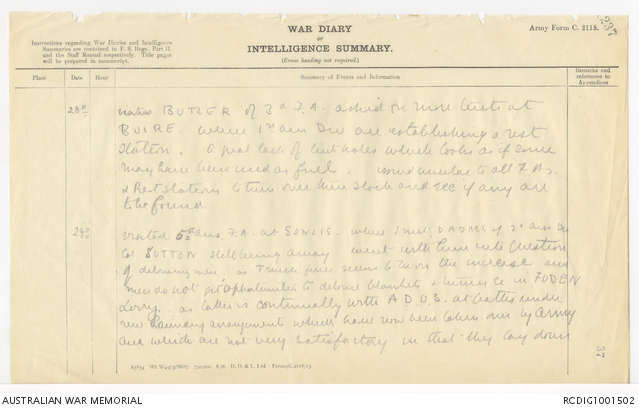 237
WAR DIARY
or
INTELLIGENCE SUMMARY.
(Erase heading not required.)
Army Form C. 2118.
Instructions regarding War Diaries and Intelligence
Summaries are contained in F. S. Regs., Part II.
and the Staff Manual respectively. Title pages
will be prepared in manuscript.
Place Date Hour Summary of Events and Information Remarks and references to Appendices
28th visited BUTLER of 3rd F.A. asked for more tents at
BUIRE. where 1st Aus Div are establishing a rest
station. A great lack of tent poles which looks as if some
may have been used as fuel. to all F.As
& Rest Stations to turn over their stock and see if any are
to be found
29th visited 5th Aus F.A. at SENLIS. where I met DADMS of 2nd Aus Div
Col SUTTON still being away went with them into question
of as seems to be on the increase and
men do not get opportunities to blankets & in FODEN
Lorry. as latter is continually with A.D.O.S. at under
new laundry arrangements which have now been taken over by Army
and which are not very satisfactory in that they lay down
37
AUSTRALIAN WAR MEMORIAL
RCDIG1001502